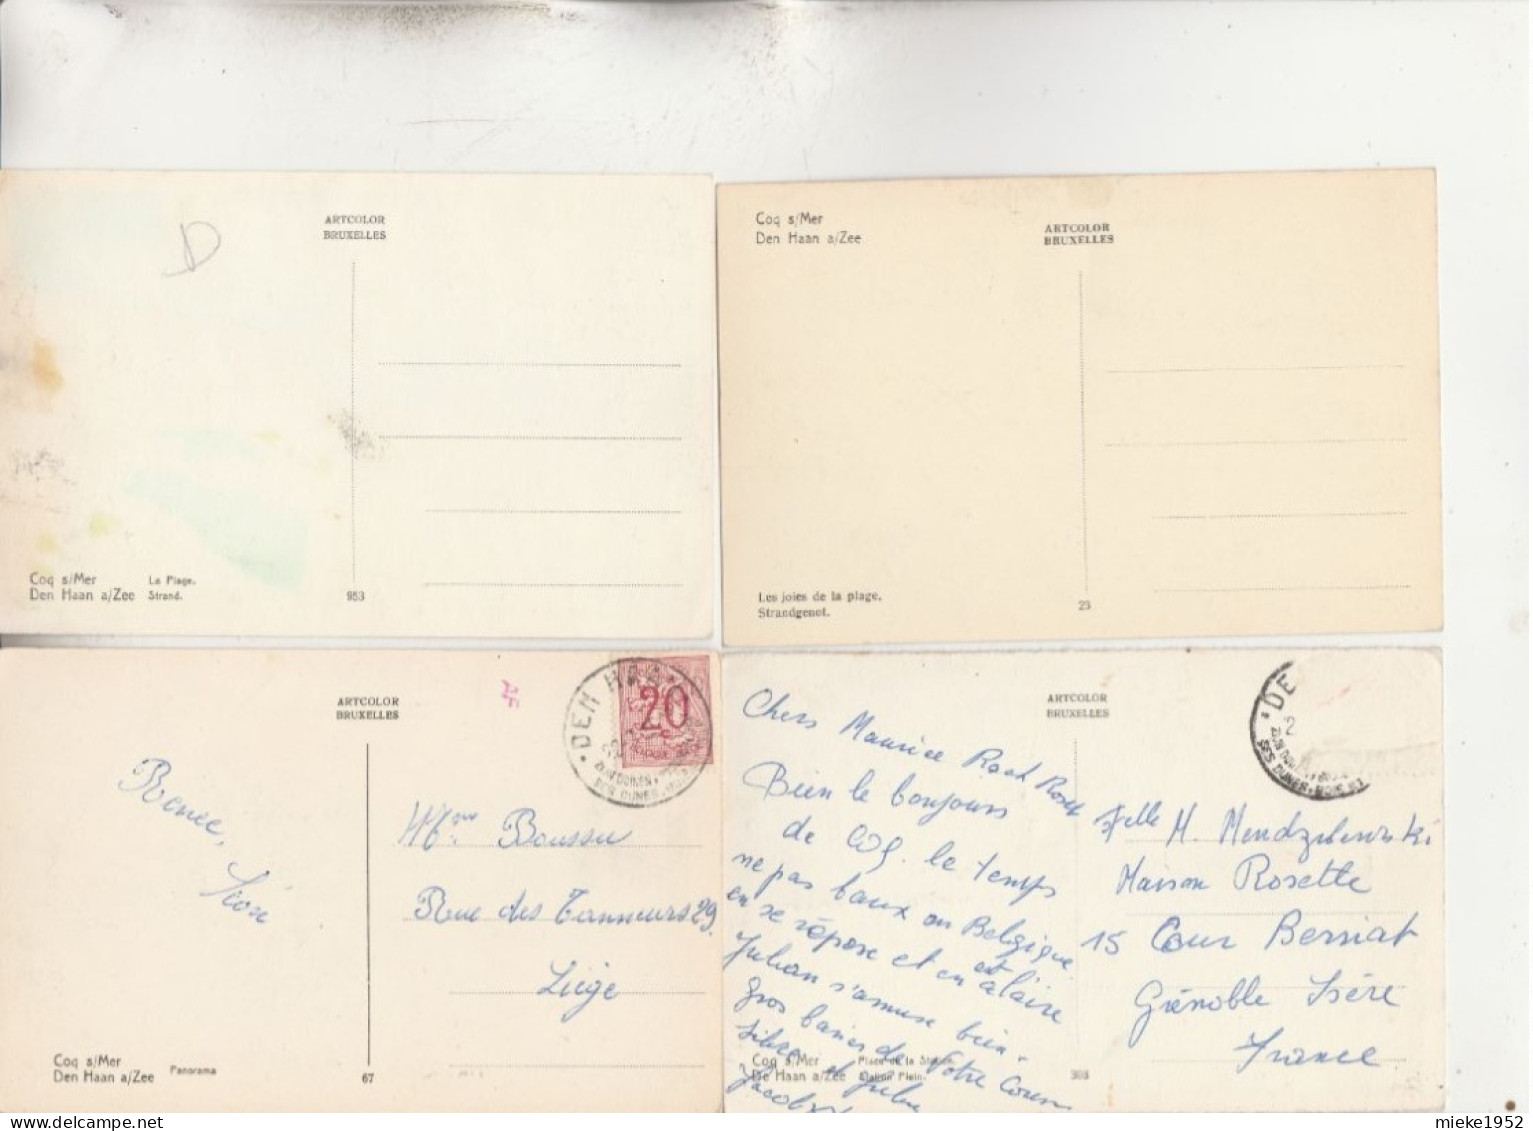 ARTCOLOR
BRUXELLES
D
Coq s/Mer La Plage.
Den Haan a/Zee Strand.
953
Coq s/Mer
Den Haan a/Zee
ARTCOLOR
BRUXELLES
Les joies de la plage.
Strandgenot.
23
ARTCOLOR
BRUXELLES
DEN HAAN
20
Renée,
Mme Boussu
Rue des Tanneurs 29.
Liège
Coq s/Mer
Den Haan a/Zee
Panorama
67
ARTCOLOR
BRUXELLES
DE
2
Chers Maurice
Bien le bonjours
de COQ. le temps
ne pas baux en Belgique
en se repose et on est
à l'aire
Julian s'amuse bien.
Gros baiser de Votre
Maison Rosette
15 Cour Berriat
Grénoble Isère
France
Coq s/Mer Place de la Station.
De Haan a/Zee Station Plein.
303
mieke1952